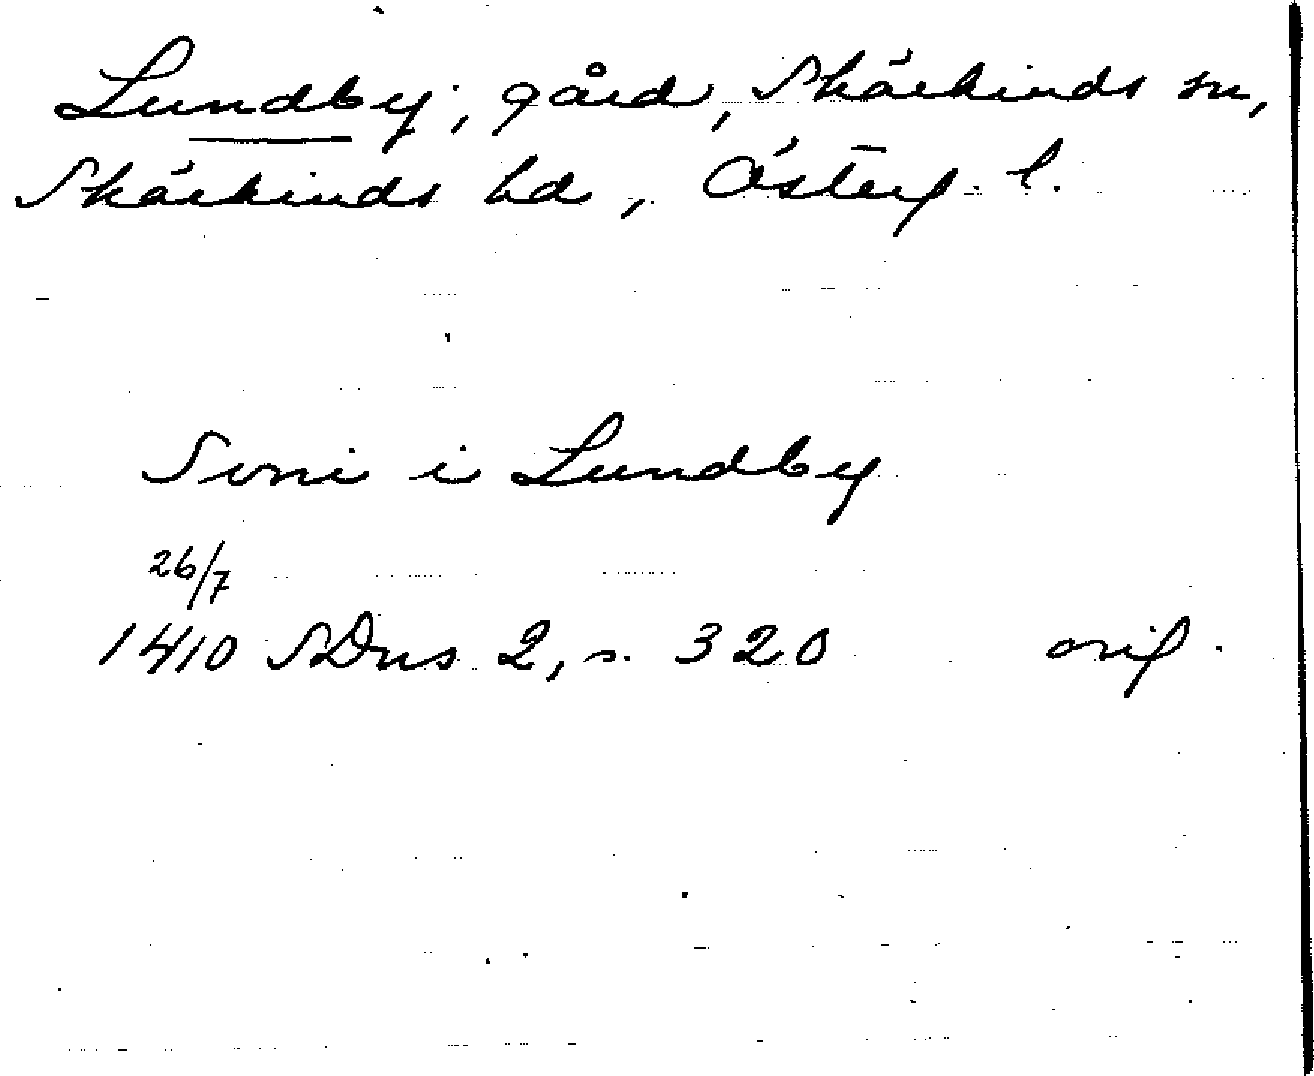 Lundby, gård, Skärkinds sn,
Skärkinds hd, Österg. l.
Soni i Lundby
26/7
1410 SDns 2, s. 320 orig.